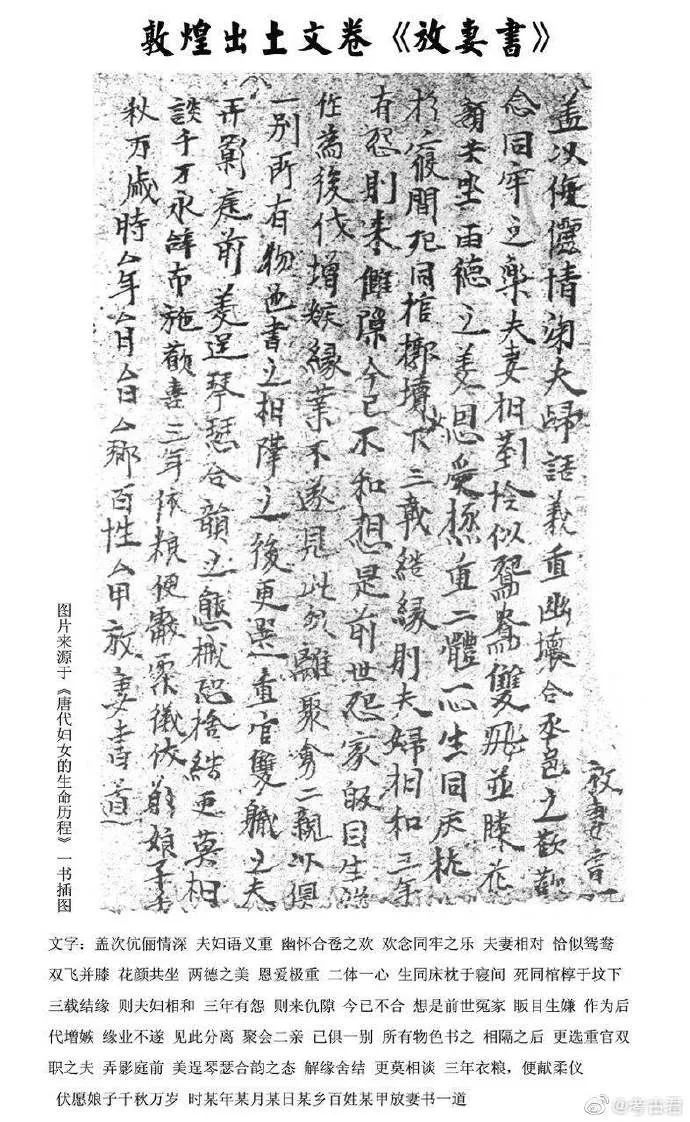 敦煌出土文卷《放妻書》
放妻書一
盖以伉儷情深夫婦語義重幽懷合巹之歡歡
念同牢之樂夫妻相對恰似鴛鴦雙飛並膝花
顏共坐兩德之美恩愛極重二體一心生同床枕
於寢間死同棺槨墳下三載結緣則夫婦相和三年
有怨則來讎隙今已不和想是前世怨家眅目生嫌
作為後代增嫉緣業不遂見此分離聚會二親以俱
一別所有物色書之相隔之後更選重官雙職之夫
弄影庭前美逞琴瑟合韻之態捨結更莫相
談千万永辭布施歡喜三年依粮便獻柔儀伏願娘子千
秋万歲時厶年厶月厶日厶鄉百姓厶甲放妻書道
图片来源于《唐代妇女的生命历程》一书插图
文字：盖次伉俪情深 夫妇语义重 幽怀合卺之欢 欢念同牢之乐 夫妻相对 恰似鸳鸯
双飞并膝 花颜共坐 两德之美 恩爱极重 二体一心 生同床枕于寝间 死同棺椁于坟下
三载结缘 则夫妇相和 三年有怨 则来仇隙 今已不合 想是前世冤家 眅目生嫌 作为后
代增嫉 缘业不遂 见此分离 聚会二亲 己俱一别 所有物色书之 相隔之后 更选重官双
职之夫 弄影庭前 美逞琴瑟合韵之态 解缘舍结 更莫相谈 三年衣粮，便献柔仪
伏愿娘子千秋万岁 时某年某月某日某乡百姓某甲放妻书一道
@考古君